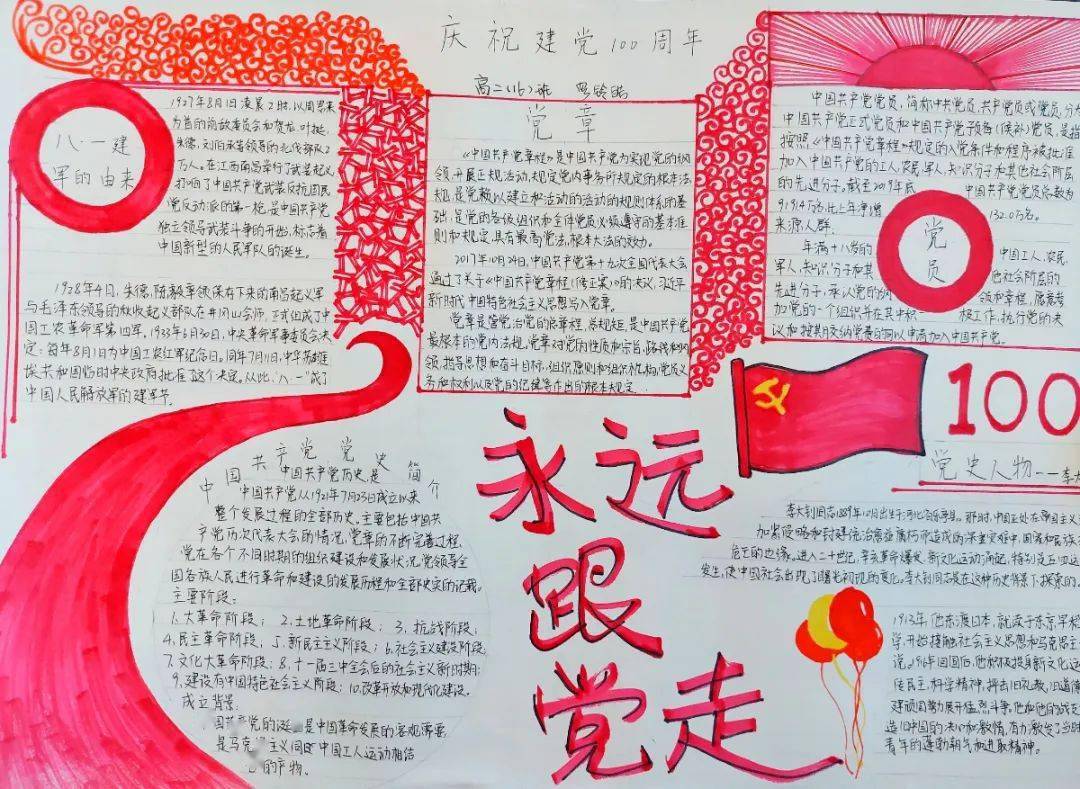 庆祝建党100周年
高二(16)班
八·一建
军的由来
1927年8月1日凌晨2时,以周恩来
为首的前敌委员会和贺龙、叶挺、
朱德、刘伯承等领导的北伐部队2
万人。在江西南昌举行了武装起义,
打响了中国共产党武装反抗国民
党反动派的第一枪,是中国共产党
独立领导武装斗争的开始,标志着
中国新型的人民军队的诞生。
1928年4月,朱德,陈毅率领保存下来的南昌起义军
与毛泽东领导的秋收起义部队在井冈山会师,正式组成了中
国工农革命军第四军。1933年6月30日,中央革命军事委员会决
定:每年8月1日为中国工农红军纪念日。同年7月11日,中华苏维
埃共和国临时中央政府批准了这个决定。从此,八一成了
中国人民解放军的建军节。
党章
《中国共产党章程》是中国共产党为实现党的纲
领,开展正规活动,规定党内事务所规定的根本法
规,是党赖以建立和活动的活动的规则体系的基
础,是党的各级组织和全体党员必须遵守的基本准
则和规定,具有最高党法,根本大法的效力。
2017年10月24日,中国共产党第十九次全国代表大会
通过了关于《中国共产党章程(修正案)》的决议,习近平
新时代中国特色社会主义思想写入党章。
党章是管党治党的总章程,总规矩,是中国共产党
最根本的党内法规,党章对党的性质和宗旨,路线和纲
领,指导思想和奋斗目标,组织原则和组织机构,党员义
务和权利以及党的纪律等作出的根本规定.
中国共产党党员,简称中共党员,共产党员或党员,分为
中国共产党正式党员和中国共产党预备(候补)党员,是指
按照《中国共产党章程》规定的入党条件和程序被批准
加入中国共产党的工人、农民、军人、知识分子和其他社会阶层
的先进分子,截至2019年底 中国共产党党员总数为
9191.4万名,比上年净增 132.0万名。
来源人群:
党
员
年满十八岁的 中国工人,农民,
军人,知识分子和其 他社会阶层的
先进分子,承认党的纲 领和章程,愿意参
加党的一个组织并在其中积 极工作,执行党的决
议和按期交纳党费的可以申请加入中国共产党。
100
中国共产党党史简介
中国共产党历史,是
中国共产党从1921年7月23日成立以来
整个发展过程的全部历史。主要包括中国共
产党历次代表大会的情况,党章的不断完善过程,
党在各个不同时期的组织建设和发展状况,党领导全
国各族人民进行革命和建设的发展历程和全部史实的记载。
主要阶段:
1.大革命阶段;2.土地革命阶段;3.抗战阶段;
4.民主革命阶段;5.新民主主义阶段;6.社会主义建设阶段;
7.文化大革命阶段;8.十一届三中全会后的社会主义新时期;
9.建设有中国特色社会主义阶段;10.改革开放和现代化建设。
成立背景:
国共产党的诞 是中国革命发展的客观需要,
是马克 主义同 中国工人运动相结
的产物。
永远
跟
党走
党史人物——李大
李大钊同志1889年10月出生于河北乐亭县。那时,中国正处在帝国主义
加紧侵略和封建统治愈益腐朽所造成的深重灾难中,国家和民族
危亡的边缘。进入二十世纪,辛亥革命爆发,新文化运动涌起,特别是五四运
发生,使中国社会出现了曙光初现的变化。李大钊同志是在这种历史背景下探索的
1913年,他东渡日本,就读于东京早稻
学,开始接触社会主义思想和马克思主
说。1916年回国后,他积极投身新文化运
传民主,科学精神,抨击旧礼教,旧道德
建顽固势力展开猛烈斗争,他和他的战友
造旧中国的决心和激情,有力激发了当时
青年的蓬勃朝气和进取精神。